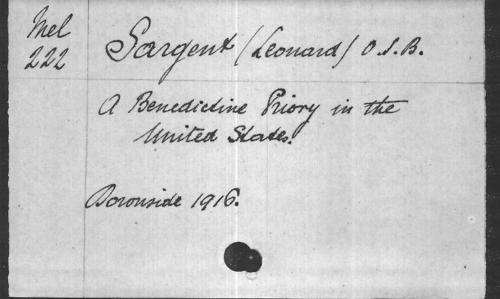 Mel
222
Sargent (Leonard) O.S.B.
A Benedictine Priory in the
United States.
Downside 1916.